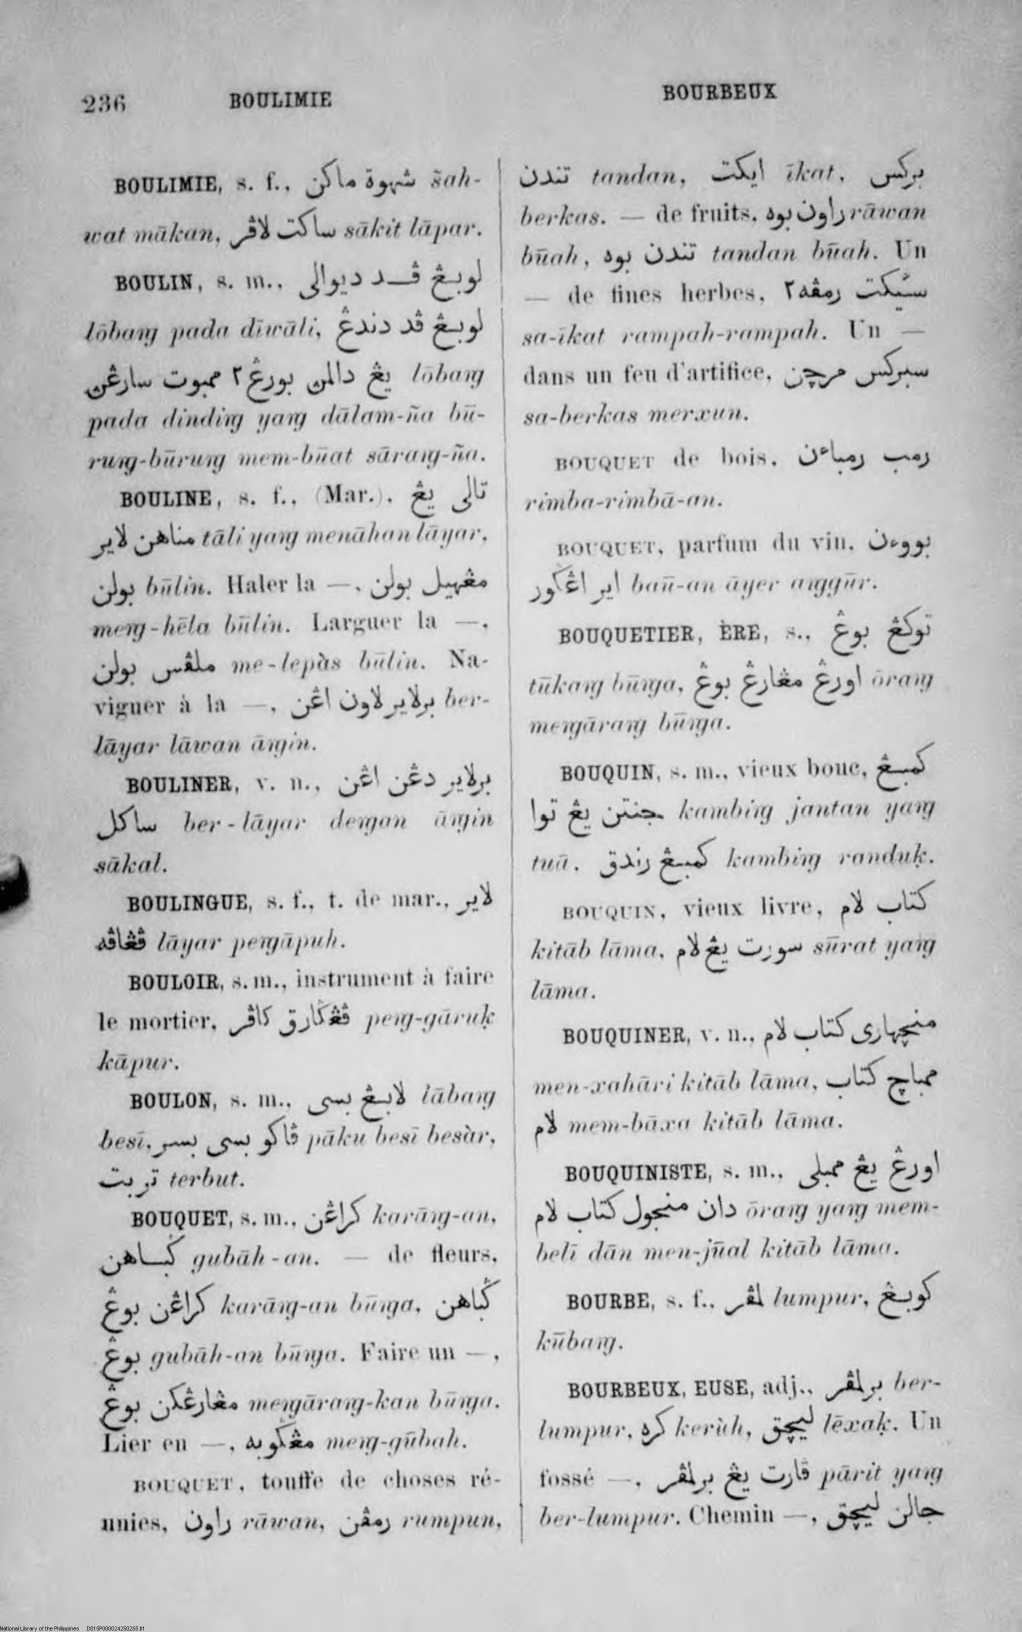 236 BOULIMIE BOURBEUX
BOULIMIE, s. f., شهوة ماكن šah-
wat mākan, ساكت لاڤر sākit lāpar.
BOULIN, s. m., لوبڠ ڤد ديوالى
lōbaꞑg pada dīwāli, لوبڠ ڤد دندڠ
يڠ دالمڽ بورڠ٢ ممبوت سارڠڽ lōbaꞑg
pada dindiꞑg yaꞑg dālam-ña bū-
ruꞑg-būruꞑg mem-būat sāraꞑg-ña.
BOULINE, s. f., (Mar.), تالى يڠ
مناهن لاير tāli yaꞑg menāhan lāyar,
بولن būlin. Haler la —, مڠهيل بولن
meꞑg-hēla būlin. Larguer la —,
ملڤس بولن me-lepàs būlin. Na-
viguer à la —, برلاير لاون اڠن ber-
lāyar lāwan āꞑgin.
BOULINER, v. n., برلاير دڠن اڠن
ساكل ber-lāyar deꞑgan āꞑgin
sākal.
BOULINGUE, s. f., t. de mar., لاير
ڤڠاڤه lāyar peꞑgāpuh.
BOULOIR, s. m., instrument à faire
le mortier, ڤڠݢارق كاڤر peꞑg-gāruḳ
kāpur.
BOULON, s. m., لابڠ بسى lābaꞑg
besī, ڤاكو بسى بسر pāku besī besàr,
تربت terbut.
BOUQUET, s. m., كراڠن karāꞑg-an,
ݢباهن gubāh-an. — de fleurs,
كراڠن بوڠ karāꞑg-an būꞑga, ݢباهن
بوڠ gubāh-an būꞑga. Faire un —,
مڠارڠكن بوڠ meꞑgāraꞑg-kan būꞑga.
Lier en —, مڠݢوبه meꞑg-gūbah.
BOUQUET, touffe de choses ré-
unies, راون rāwan, رمڤن rumpun,
تندن tandan, ايكت īkat, بركس
berkas. — de fruits, راون بوه rāwan
būah, تندن بوه tandan būah. Un
— de fines herbes, سئيكت رمڤه٢
sa-īkat rampah-rampah. Un —
dans un feu d'artifice, سبركس مرچن
sa-berkas merxun.
BOUQUET de bois, رمب رمباءن
rimba-rimbā-an.
BOUQUET, parfum du vin, بووءن
اير اڠݢور baū-an āyer aꞑggūr.
BOUQUETIER, ÈRE, s., توكڠ بوڠ
tūkaꞑg būꞑga, اورڠ مڠارڠ بوڠ ōraꞑg
meꞑgāraꞑg būꞑga.
BOUQUIN, s. m., vieux bouc, كمبڠ
جنتن يڠ توا kambiꞑg jantan yaꞑg
tuā, كمبڠ رندق kambiꞑg randuḳ.
BOUQUIN, vieux livre, كتاب لام
kitāb lāma, سورت يڠ لام sūrat yaꞑg
lāma.
BOUQUINER, v. n., منچهارى كتاب لام
men-xahāri kitāb lāma, ممباچ كتاب
لام mem-bāxa kitāb lāma.
BOUQUINISTE, s. m., اورڠ يڠ ممبلى
دان منجول كتاب لام ōraꞑg yaꞑg mem-
belī dān men-jūal kitāb lāma.
BOURBE, s. f., لمڤر lumpur, كوبڠ
kūbaꞑg.
BOURBEUX, EUSE, adj., برلمڤر ber-
lumpur, كره kerùh, ليچق lēxaḳ. Un
fossé —, ڤارت يڠ برلمڤر pārit yaꞑg
ber-lumpur. Chemin —, جالن ليچق
National Library of the Philippines